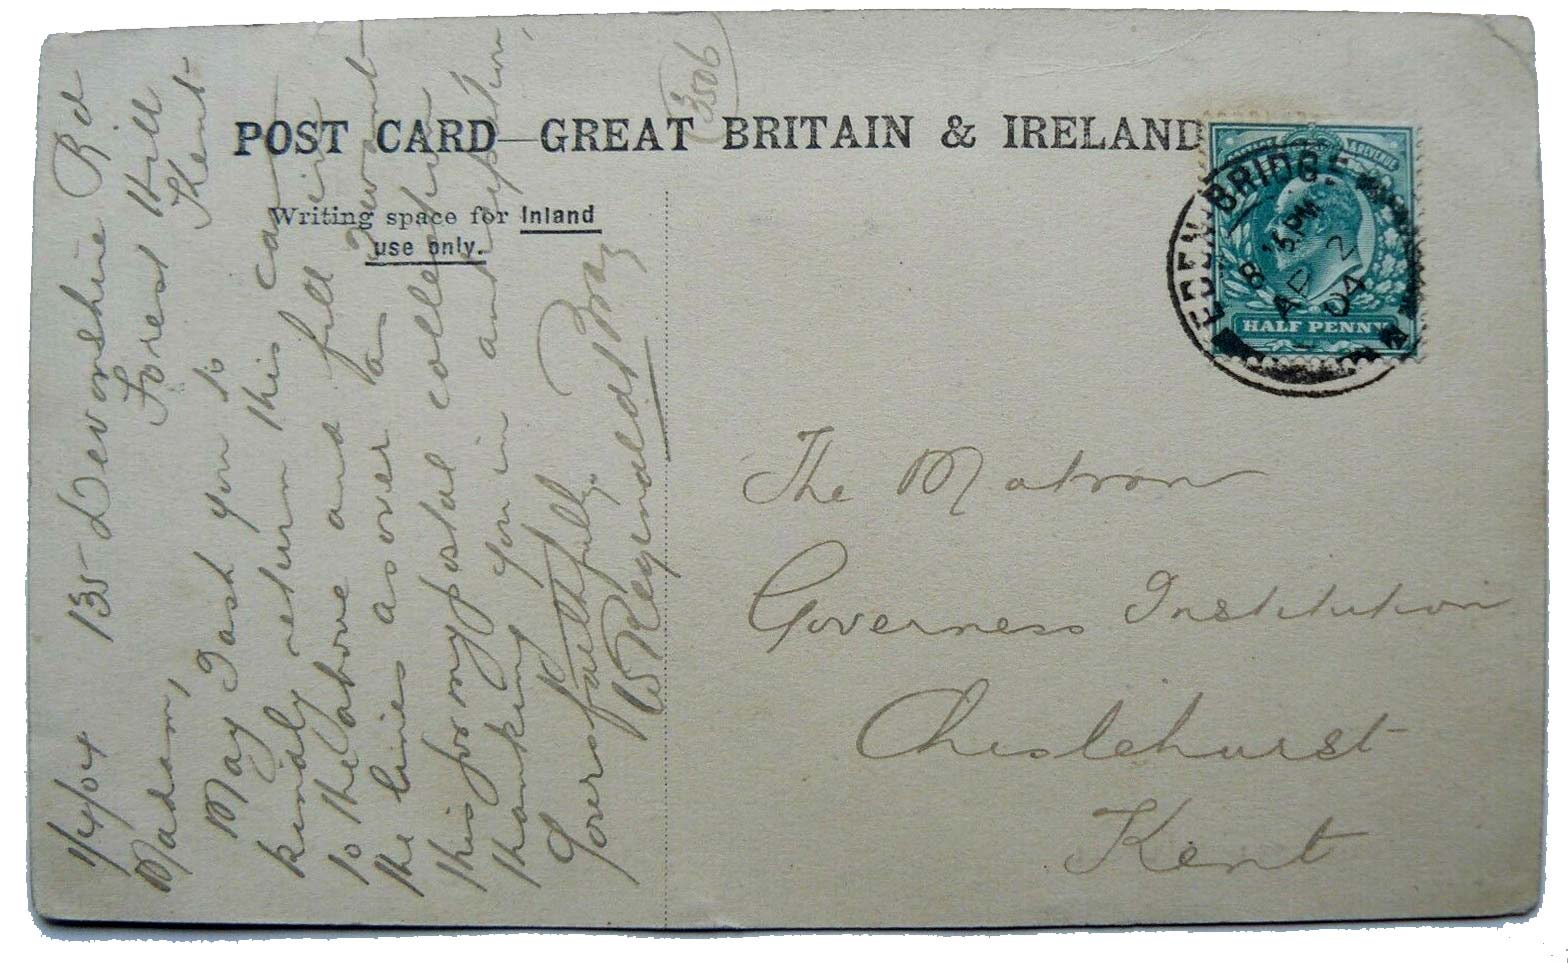 POST CARD—GREAT BRITAIN & IRELAND
Writing space for Inland
use only.
3506
1/4/04 135 Devonshire Rd
Forest Hill
Kent
Madam,
May I ask you to
kindly return this card
to the above and fill in
the lines as over as I want
this for my postal collection
thanking you in anticipation,
Yours faithfully
Reginald Bray
EDENBRIDGE
8 15 PM
AP 2
04
HALF PENNY
The Matron
Governess Institution
Chislehurst
Kent